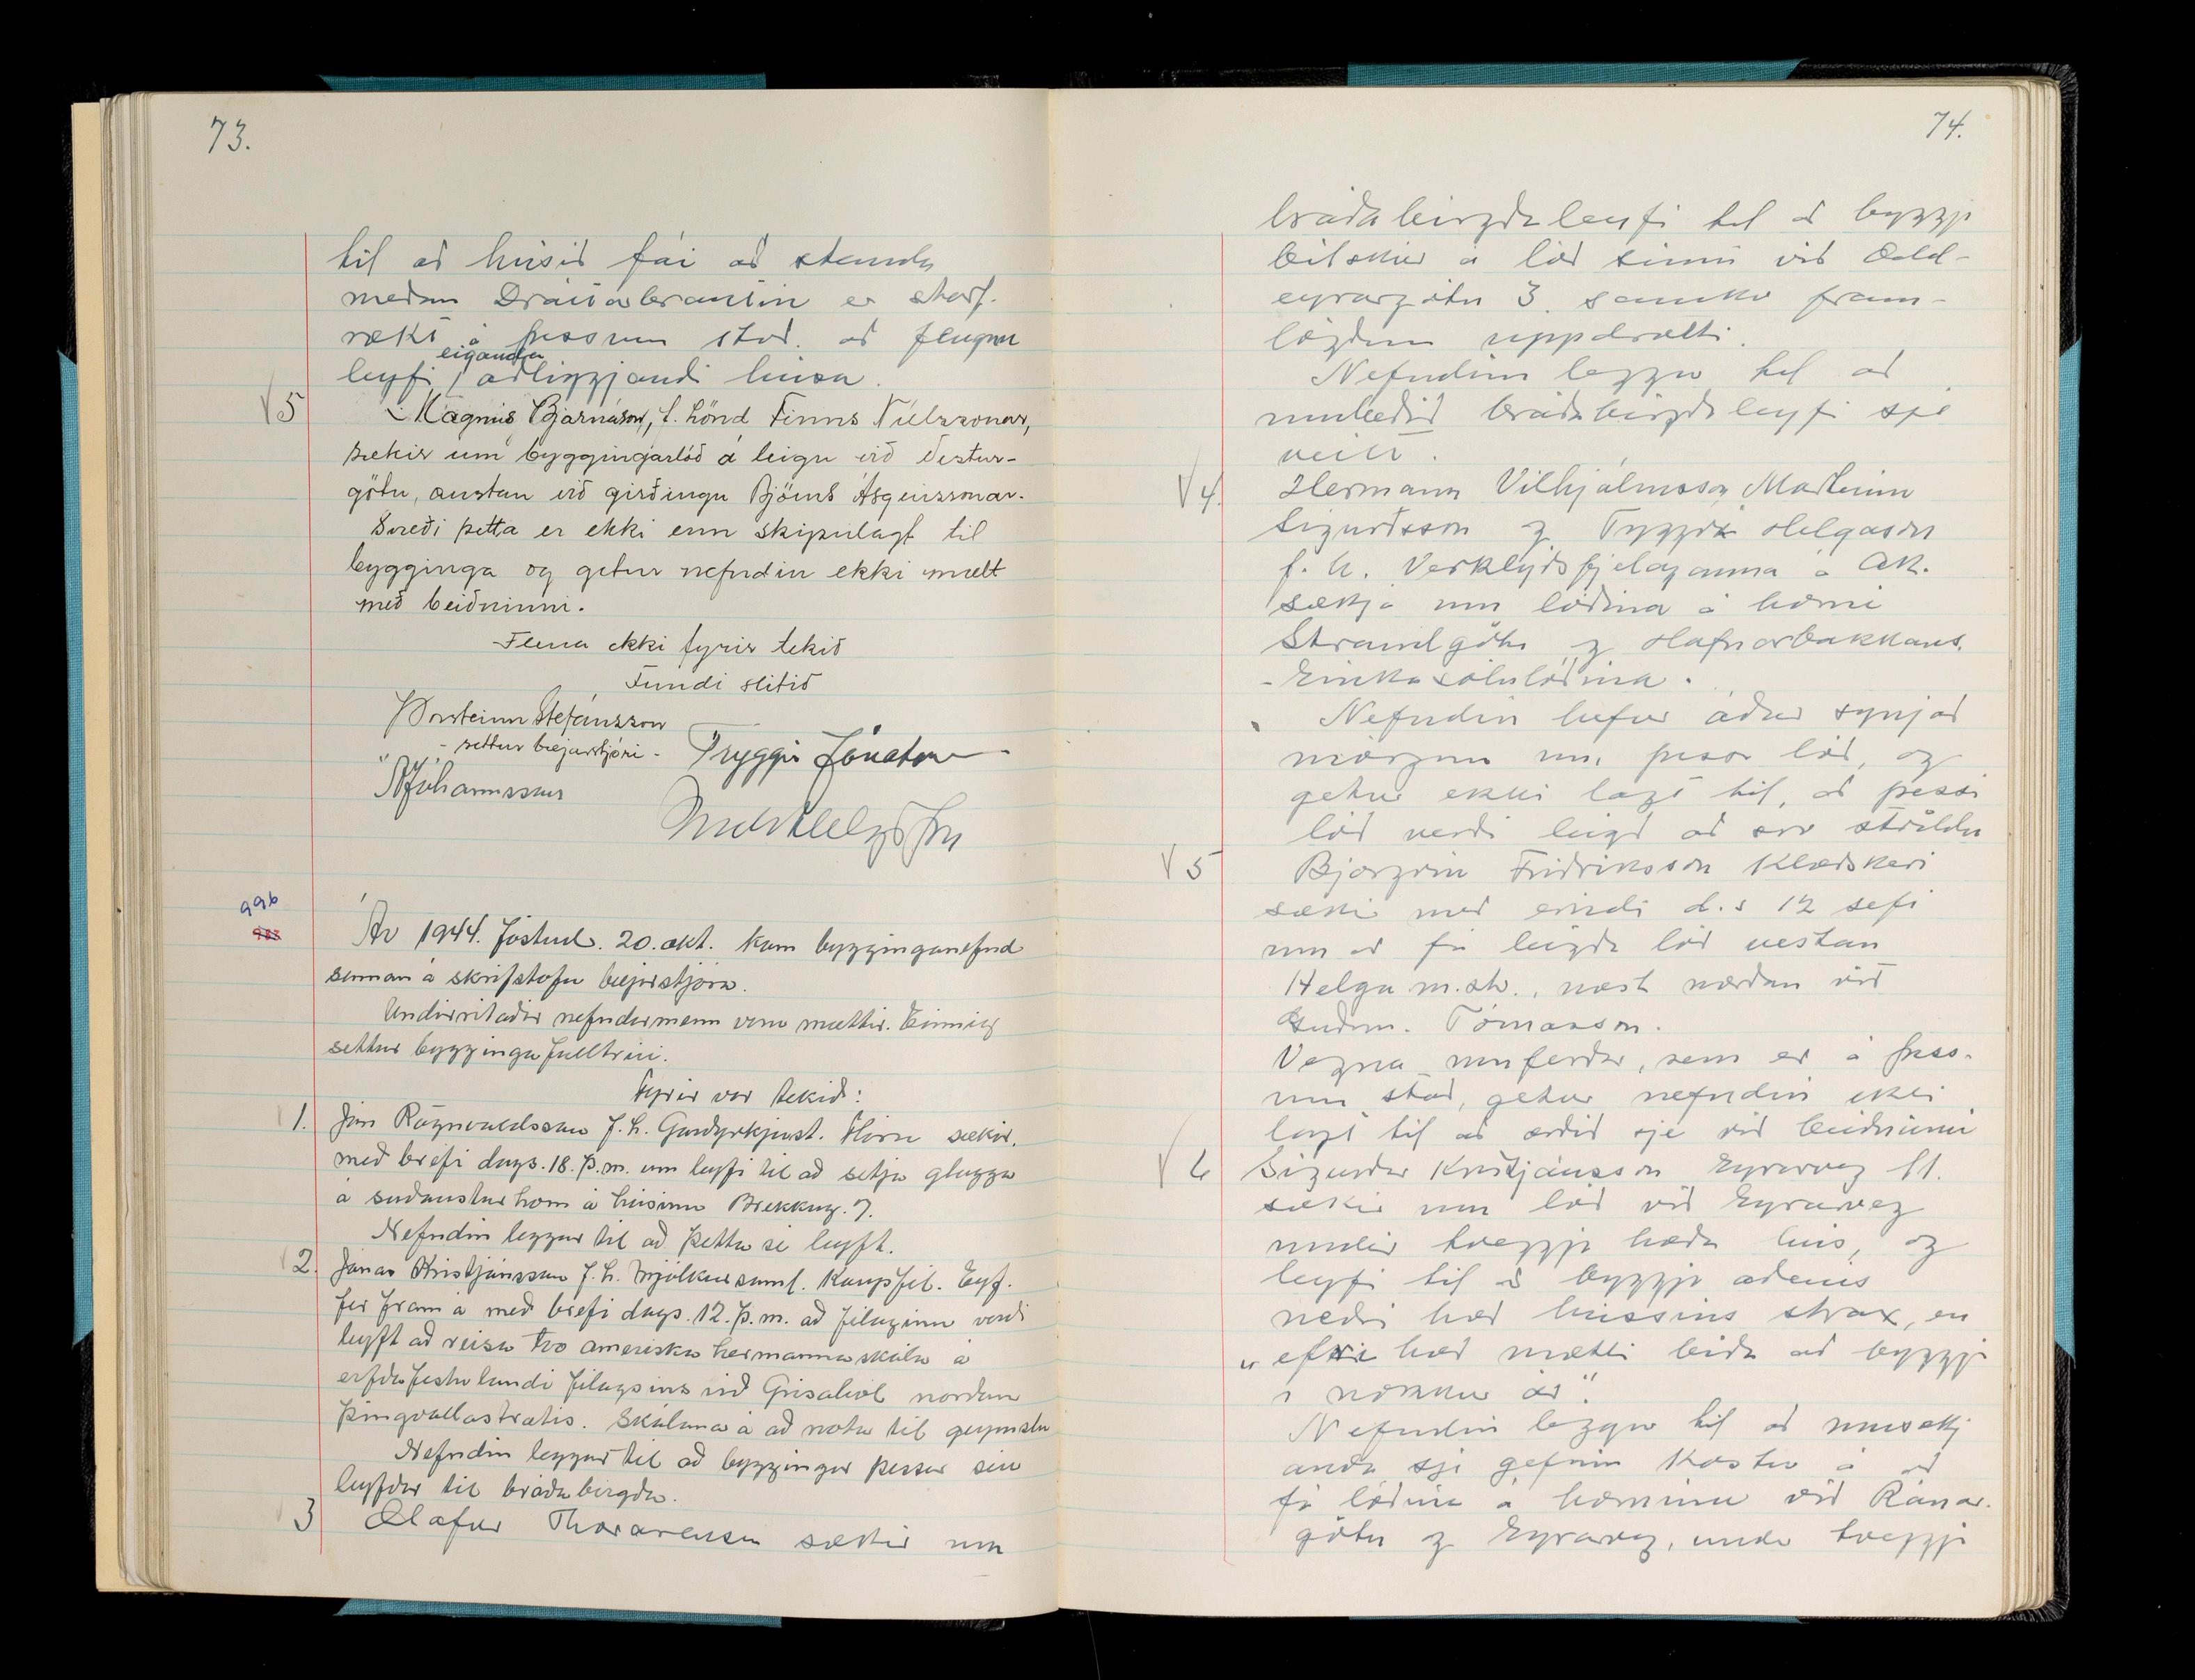 73.
til að húsið fái að standa
meðan Dráttarbrautin er starf-
rækt á þessum stað. að fengnu
eigandja
leyfi / aðliggjandi húsa.
V5 Magnús Bjarnason, f. hönd Finns Níelssonar,
sækir um byggingarlóð á leigu við Vestur-
götu, austan við girðingu Björns Ásgeirssonar.
Svæði þetta er ekki enn skipulagt til
bygginga og getur nefndin ekki mælt
með beiðninni.
Fleira ekki fyrir tekið
Fundi slitið
Þorsteinn Stefánsson
- settur bæjarstjóri - Tryggvi Jónatansson
Jóhannesson
996
988
Ár 1944. föstud. 20. okt. kom bygginganefnd
saman á skrifstofu bæjarstjóra.
Undirritaðir nefndarmenn voru mættir. Einnig
settur byggingafulltrúi.
Fyrir var tekið:
1. Jón Rögnvaldsson f.h. Garðyrkjust. Flóru sækir,
með bréfi dags. 18. þ.m. um leyfi til að setja glugga
á suðausturhorn á húsinu Brekkug. 7.
Nefndin leggur til að þetta sé leyft.
2. Jónas Kristjánsson f.h. Mjólkursaml. Kaupfél. Eyf.
fer fram á með bréfi dags. 12. þ.m. að félaginu verði
leyft að reisa tvo ameríska hermannaskála á
erfðafestulandi félagsins við Grísaból norðan
Þingvallastrætis. Skálana á að nota til geymslu
Nefndin leggur til að byggingar þessar séu
leyfðar til bráðabirgða.
3 Ólafur Thorarensen sækir um
74.
bráðabirgðaleyfi til að byggja
bílskúr á lóð sinni við Odd-
eyrargötu 3 samkv fram-
lögðum uppdrætti.
Nefndin leggur til að
umbeðið bráðabirgðaleyfi sje
veitt.
V4. Hermann Vilhjálmsson, Marteinn
Sigurðsson og Tryggvi Helgason
f.h. Verklýðsfjelaganna á Ak.
sækja um lóðina á horni
Strandgötu og Hafnarbakkans.
- Einkasölulóðina.
Nefndin hefur áður synjað
mörgum um þessa lóð, og
getur ekki lagt til, að þessi
lóð verði leigð að svo stöddu
V5 Björgvin Friðriksson klæðskeri
sækir með erindi d.s 12 sept
um að fá leigða lóð vestan
Helga m.str., næst norðan við
Guðm. Tómasson.
Vegna umferðar, sem er á þess-
um stað, getur nefndin ekki
lagt til að orðið sje við beiðninni
V6 Sigurður Kristjánsson Eyrarveg 11.
sækir um lóð við Eyrarveg
undir tveggja hæða hús, og
leyfi til að byggja aðeins
neðri hæð hússins strax, en
„efri hæð mætti bíða að byggja
í nokkur ár".
Nefndin leggur til að umsækj
anda sje gefinn kostur á að
fá lóðina á horninu við Ránar-
götu og Eyrarveg, undir tveggja